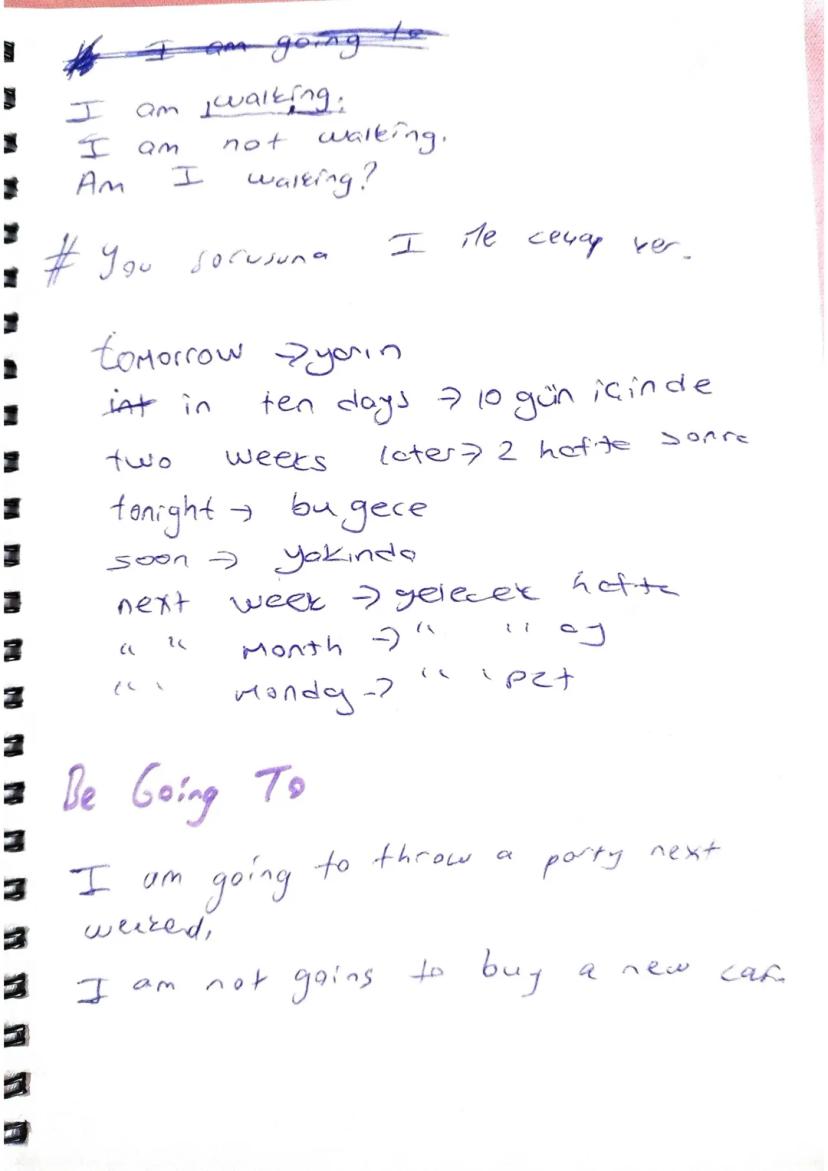 I am going to
I am walking.
I am not walking.
Am I walking?
# You sorusuna I ile cevap ver.
tomorrow → yarın
int in ten days → 10 gün içinde
two weeks later → 2 hafta sonra
tonight → bu gece
soon → yakında
next week → gelecek hafta
" " month → " " ay
" " monday → " " pzt
Be Going To
I am going to throw a party next
weeked,
I am not going to buy a new car.